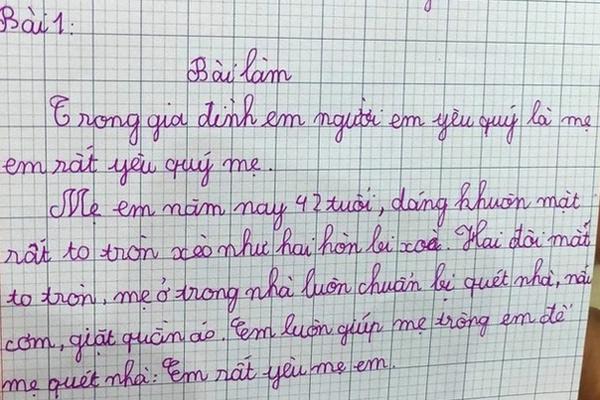 Bài 1:
Bài làm
Trong gia đình em người em yêu quý là mẹ
em rất yêu quý mẹ.
Mẹ em năm nay 42 tuổi, dáng khuôn mặt
rất to tròn xéo như hai hòn bi xoè. Hai đôi mắt
to tròn, mẹ ở trong nhà luôn chuẩn bị quét nhà, nấu
cơm, giặt quần áo. Em luôn giúp mẹ trông em để
mẹ quét nhà. Em rất yêu mẹ em.